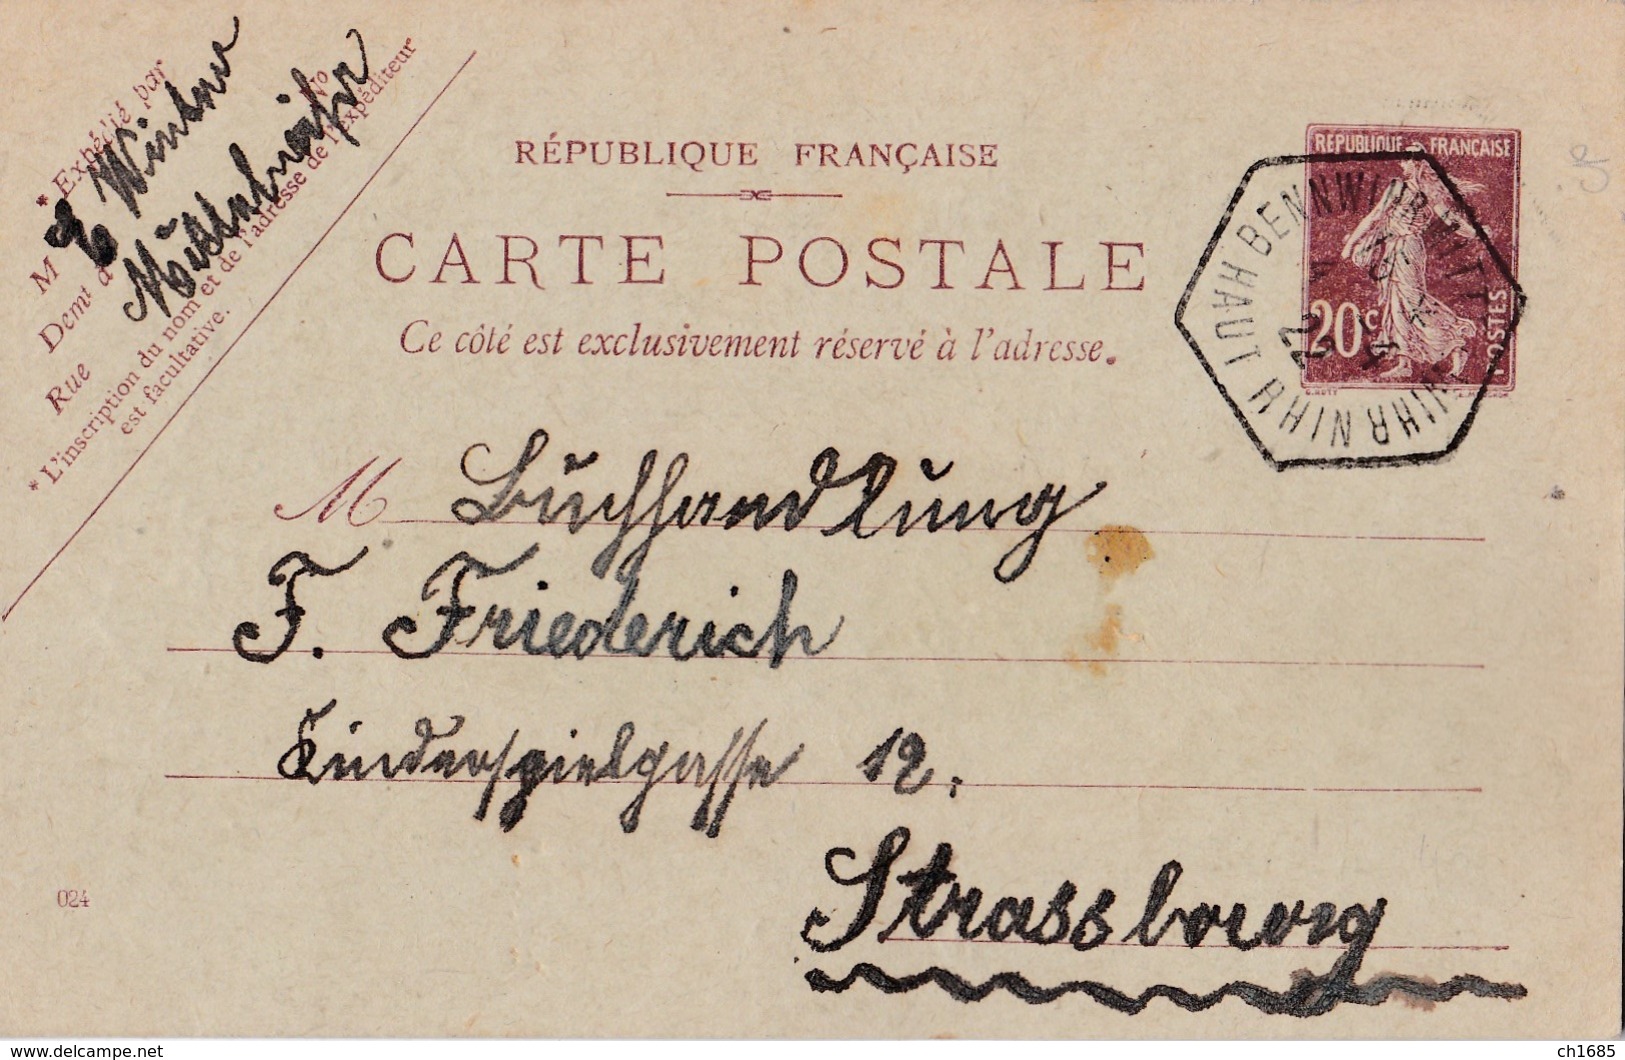 * Expédié par No
M E Winter
Demt à Mittelweihr
Rue
* L'inscription du nom et de l'adresse de l'expéditeur
est facultative.
RÉPUBLIQUE FRANÇAISE
CARTE POSTALE
Ce côté est exclusivement réservé à l'adresse.
RÉPUBLIQUE FRANÇAISE
20c
POSTES
BENNWIHR MITT
NIHR HAUT RHIN
22
M Buchhandlung
F. Friederich
Kinderspielgasse 12.
Strassbourg
024
ch1685